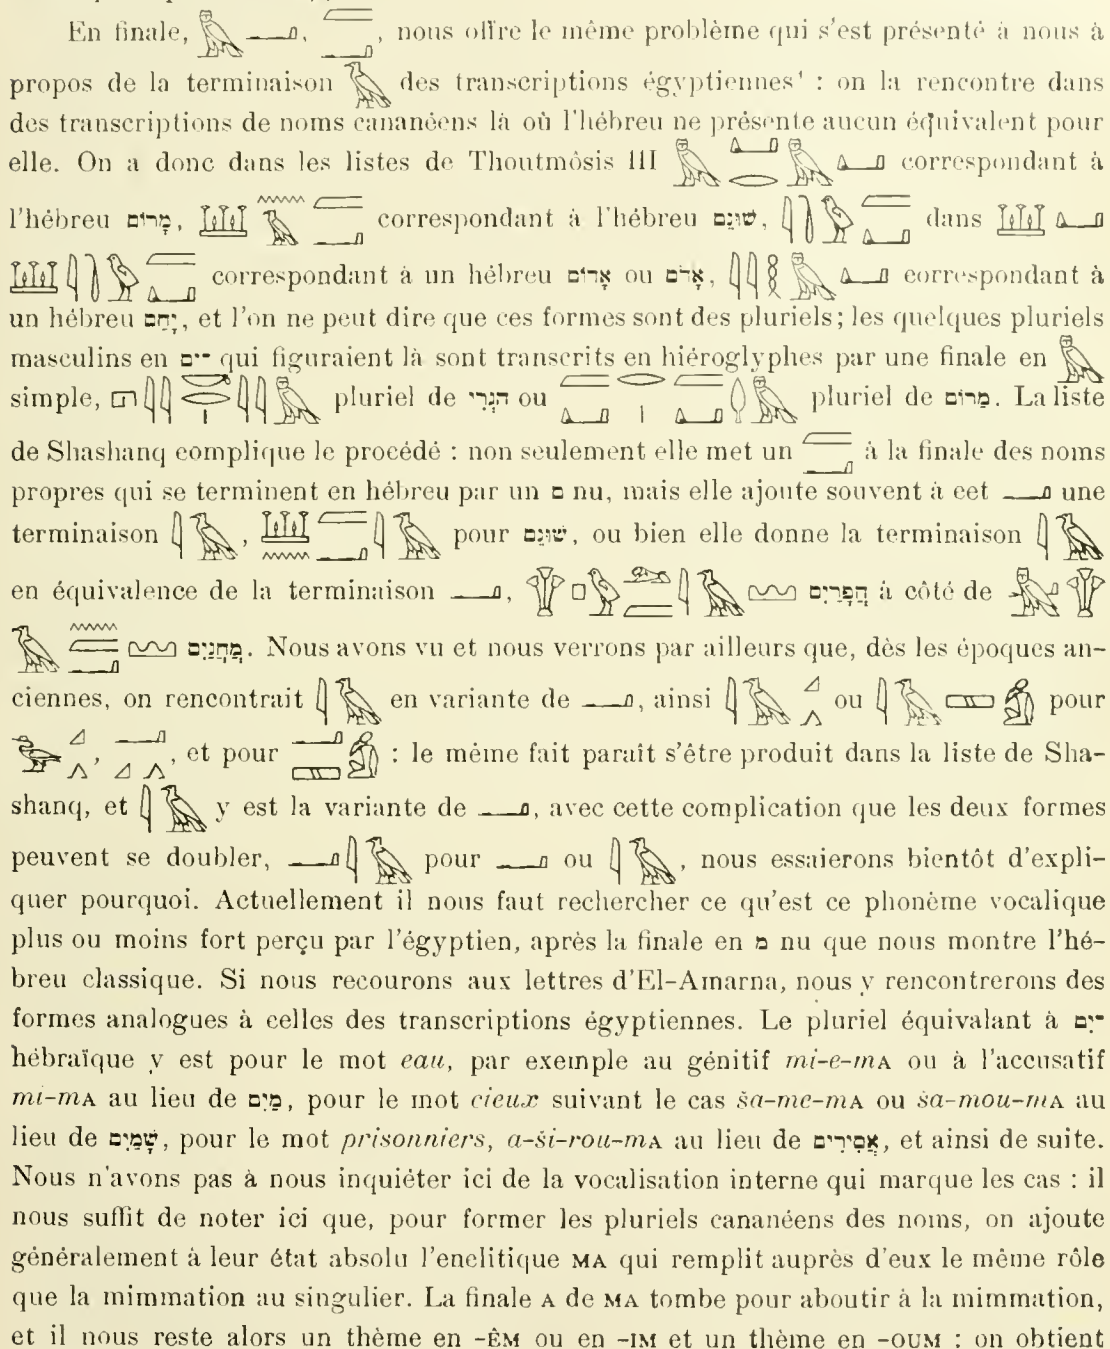 En finale, 𓅓𓂝, 𓐝𓂝, nous offre le même problème qui s'est présenté à nous à
propos de la terminaison 𓅓 des transcriptions égyptiennes¹ : on la rencontre dans
des transcriptions de noms cananéens là où l'hébreu ne présente aucun équivalent pour
elle. On a donc dans les listes de Thoutmôsis III 𓅓𓂞𓂋𓅓𓂞 correspondant à
l'hébreu מָרוֹם, 𓆷𓈖𓅓𓐝𓂝 correspondant à l'hébreu שׁוּנֵם, dans
correspondant à un hébreu אָדוֹם ou אָדֹם, 𓇌𓎛𓅓𓂞 correspondant à
un hébreu יָחַם, et l'on ne peut dire que ces formes sont des pluriels; les quelques pluriels
masculins en ־ִים qui figuraient là sont transcrits en hiéroglyphes par une finale en 𓅓
simple, pluriel de הַגְרִי ou pluriel de מָרוֹם. La liste
de Shashanq complique le procédé : non seulement elle met un 𓐝𓂝 à la finale des noms
propres qui se terminent en hébreu par un ם nu, mais elle ajoute souvent à cet 𓂝 une
terminaison 𓇋𓄿, 𓆷𓈖𓐝𓂝𓇋𓄿 pour שׁוּנֵם, ou bien elle donne la terminaison 𓇋𓄿
en équivalence de la terminaison 𓂝, חֲפָרַיִם à côté de
מַחֲנַיִם. Nous avons vu et nous verrons par ailleurs que, dès les époques an-
ciennes, on rencontrait 𓇋𓄿 en variante de 𓂝, ainsi 𓇋𓄿𓈎𓂻 ou 𓇋𓄿𓈙𓀁 pour
, et pour 𓂝𓈙𓀁 : le même fait paraît s'être produit dans la liste de Sha-
shanq, et 𓇋𓄿 y est la variante de 𓂝, avec cette complication que les deux formes
peuvent se doubler, 𓂝𓇋𓄿 pour 𓂝 ou 𓇋𓄿, nous essaierons bientôt d'expli-
quer pourquoi. Actuellement il nous faut rechercher ce qu'est ce phonème vocalique
plus ou moins fort perçu par l'égyptien, après la finale en מ nu que nous montre l'hé-
breu classique. Si nous recourons aux lettres d'El-Amarna, nous y rencontrerons des
formes analogues à celles des transcriptions égyptiennes. Le pluriel équivalant à ־ִים
hébraïque y est pour le mot eau, par exemple au génitif mi-e-mA ou à l'accusatif
mi-mA au lieu de מַיִם, pour le mot cieux suivant le cas ša-me-mA ou ša-mou-mA au
lieu de שָׁמַיִם, pour le mot prisonniers, a-ši-rou-mA au lieu de אֲסִירִים, et ainsi de suite.
Nous n'avons pas à nous inquiéter ici de la vocalisation interne qui marque les cas : il
nous suffit de noter ici que, pour former les pluriels cananéens des noms, on ajoute
généralement à leur état absolu l'enclitique MA qui remplit auprès d'eux le même rôle
que la mimmation au singulier. La finale A de MA tombe pour aboutir à la mimmation,
et il nous reste alors un thème en -ÊM ou en -IM et un thème en -OUM : on obtient